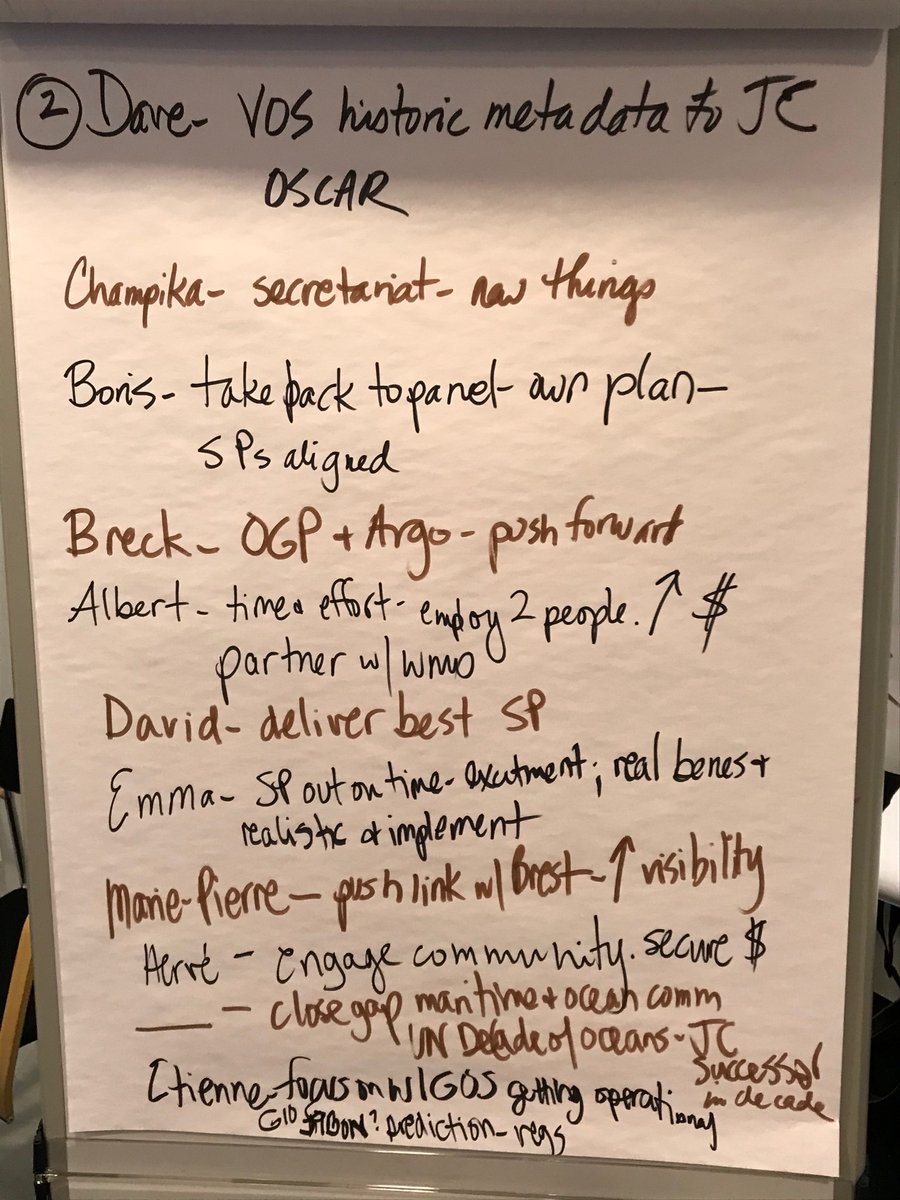 ② Dave- VOS historic metadata to JC
OSCAR
Champika- secretariat- new things
Boris- take back to panel- own plan-
SPs aligned
Breck- OGP + Argo- push forward
Albert- time & effort- employ 2 people. ↑ $
partner w/ WMO
David- deliver best SP
Emma- SP out on time- excitment; real benes +
realistic & implement
Marie-Pierre- push link w/ Brest- ↑ visibility
Hervé - Engage community. secure $
____ - close gap maritime + ocean comm
UN Decade of oceans- JC
successor
in decade
Etienne- focus on w/ GOS getting operational
prediction- regs